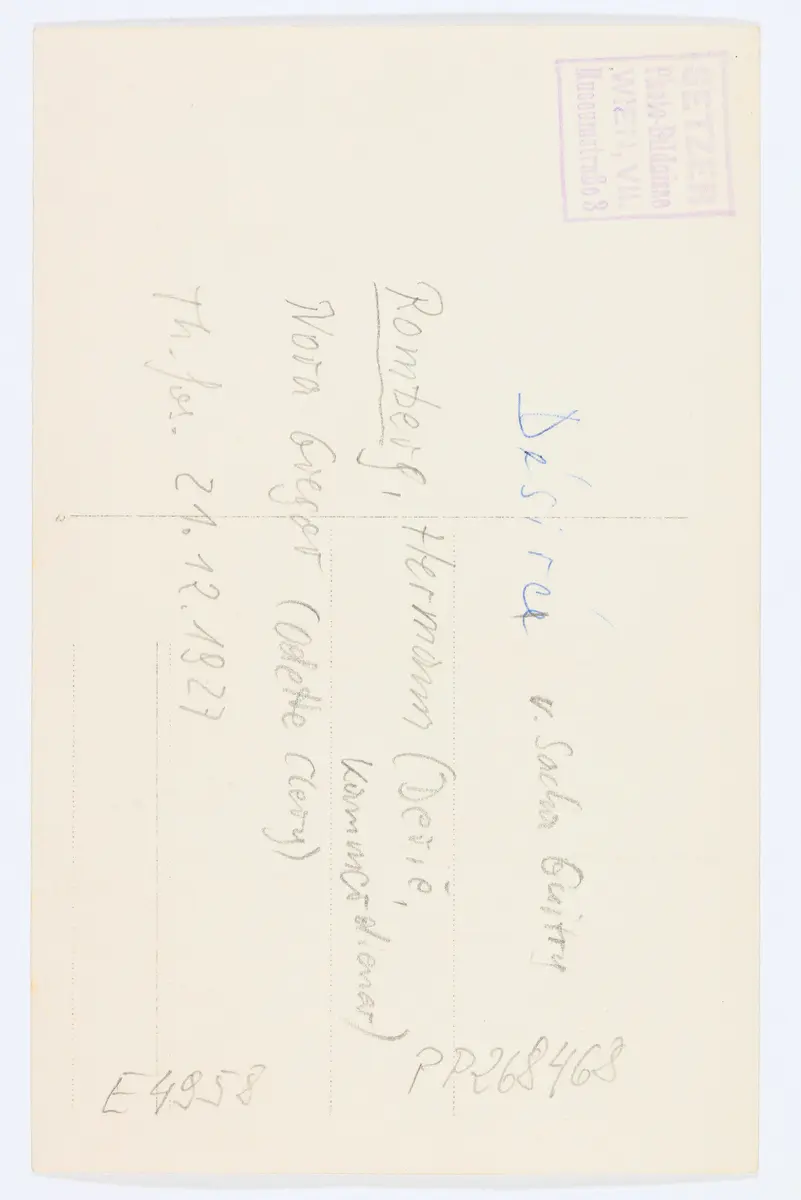 SETZER
Photo-Bildnisse
WIEN, VII.
Museumstraße 3
Désirée v. Sacha Guitry
Romberg, Hermann (Désiré,
Kammerdiener)
Nora Gregor (Odette Clery)
Th. Jos. 21.12.1927
PP268468
E4958